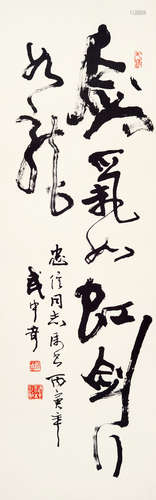 氣如虹劍
如龍
忠信同志属書丙寅年
武中奇